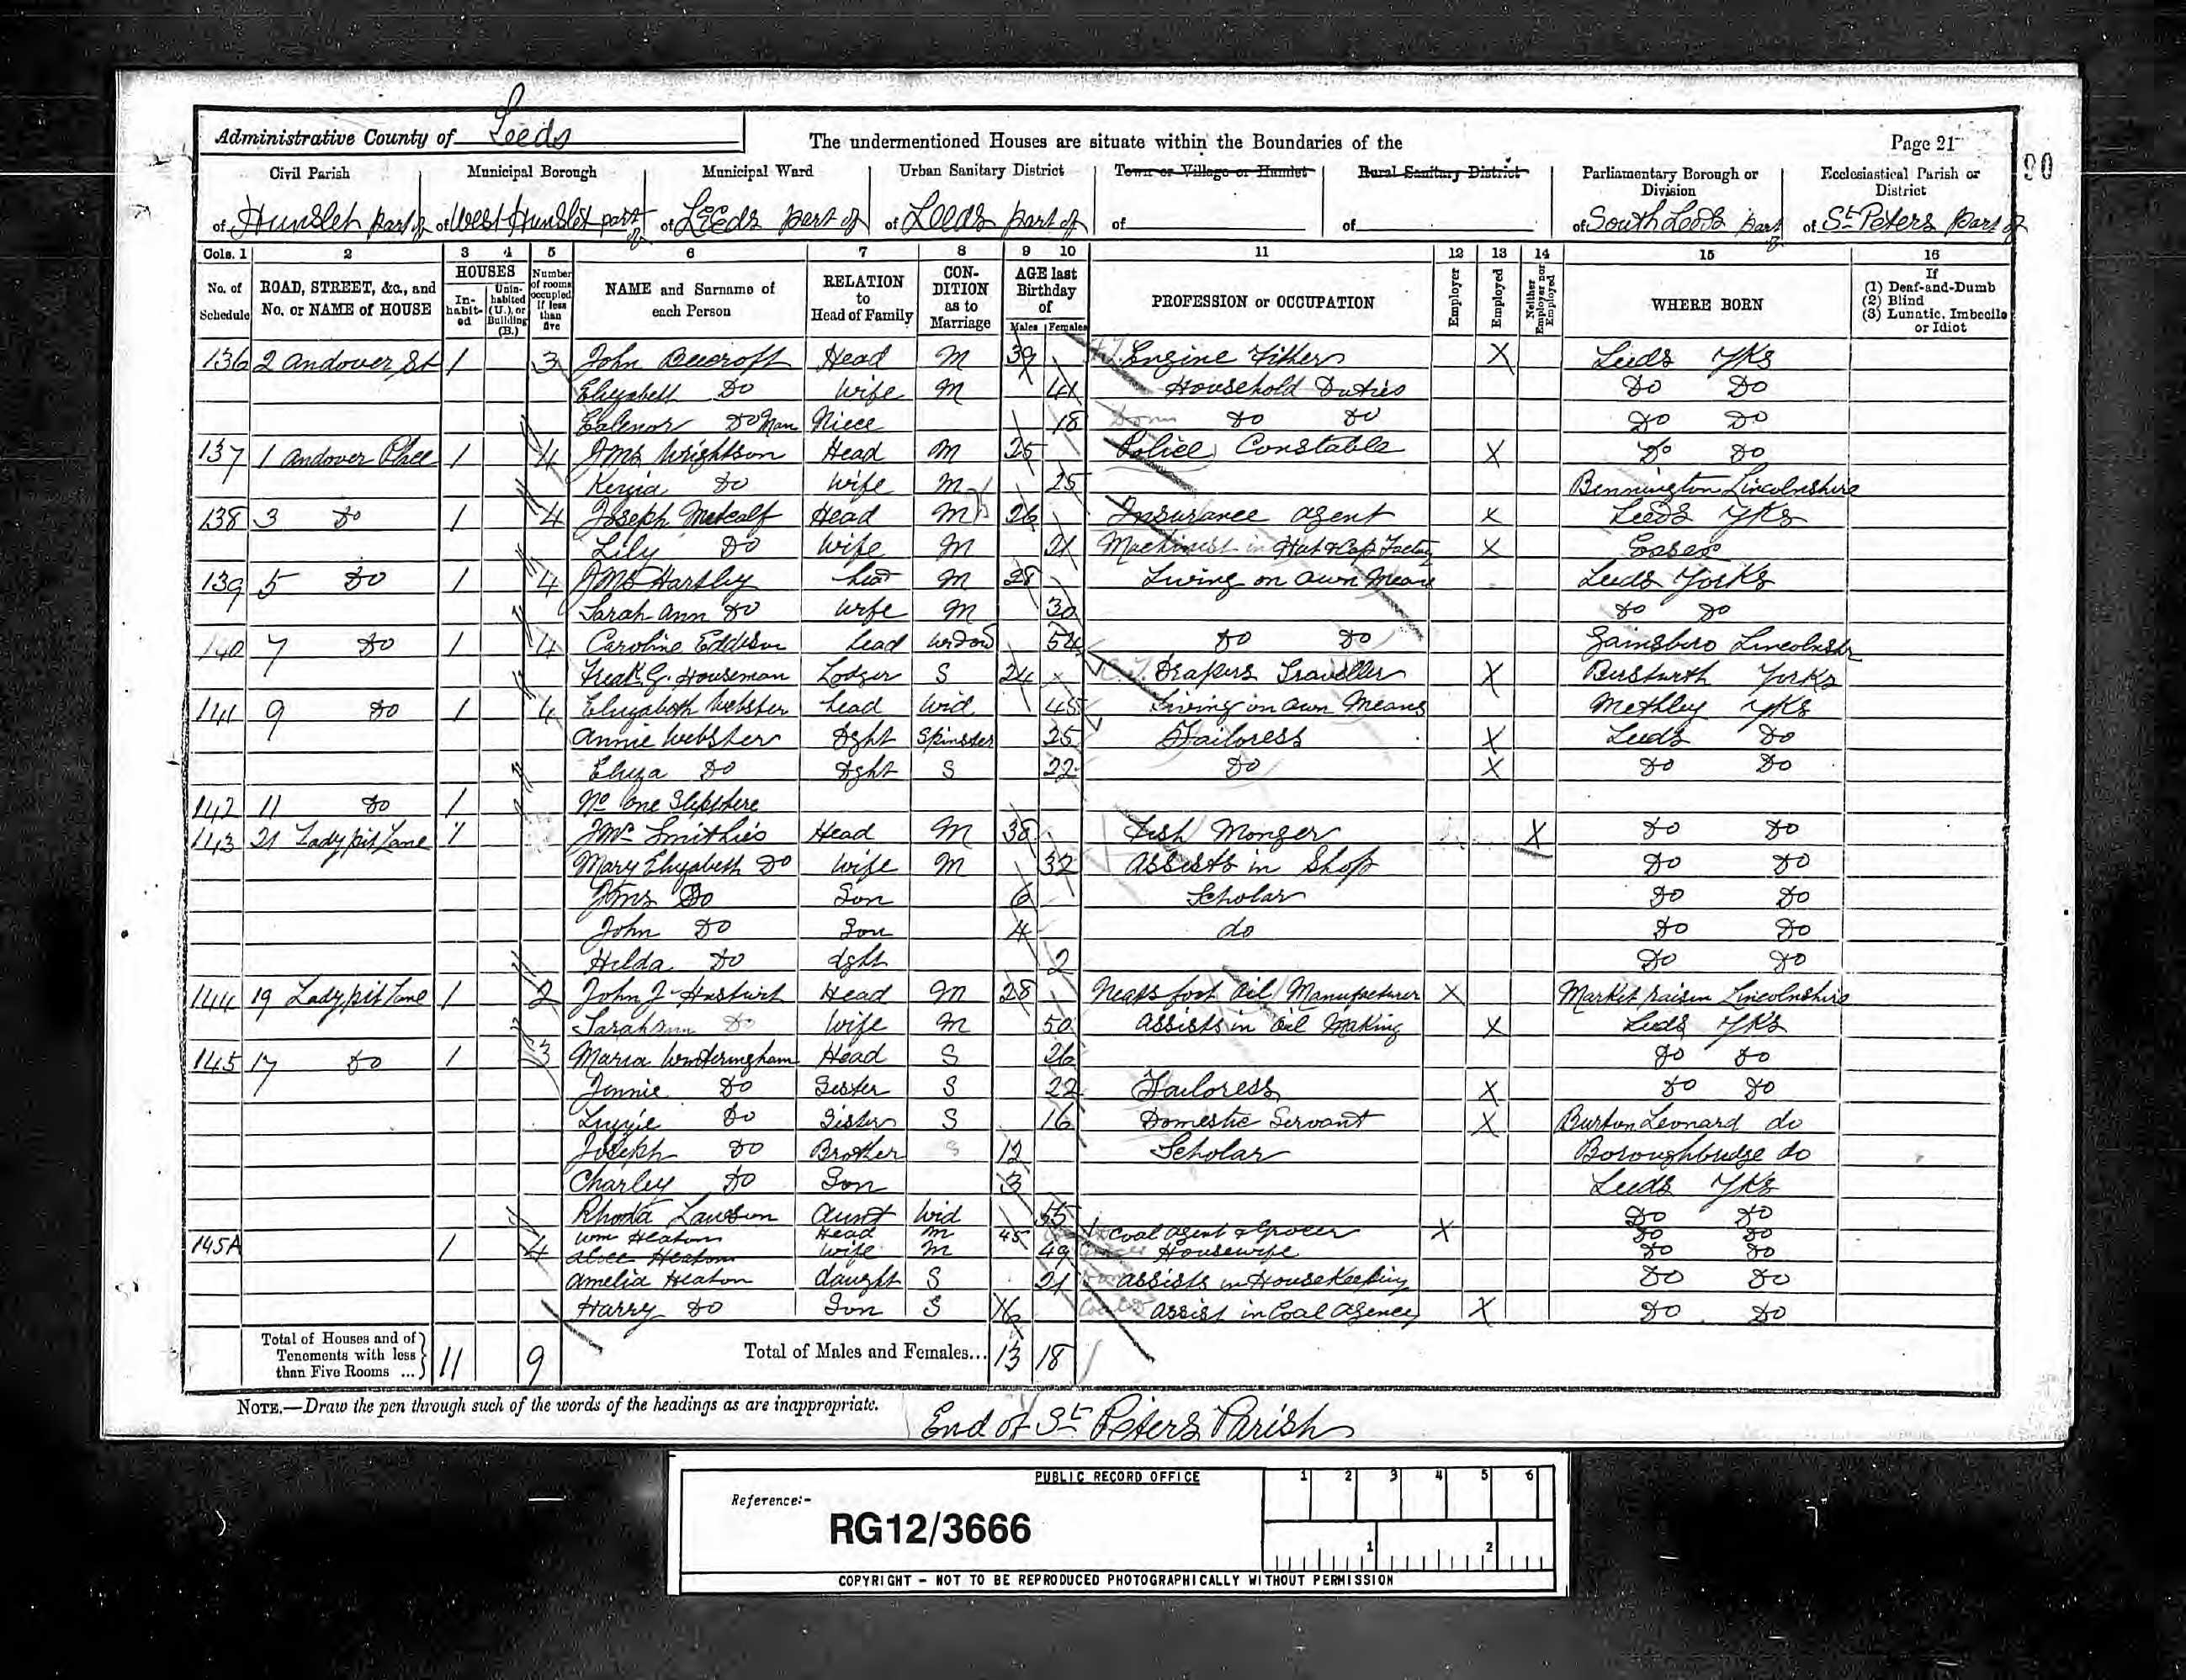 Administrative County of Leeds
The undermentioned Houses are situate within the Boundaries of the
Page 21
90
Civil Parish Municipal Borough Municipal Ward Urban Sanitary District Town or Village or Hamlet Rural Sanitary District Parliamentary Borough or Division Ecclesiastical Parish or District
of Hunslet part of of West Hunslet part of of Leeds part of of Leeds part of of of of South Leeds part of of St Peters part of
Cols. 1 2 3 4 5 6 7 8 9 10 11 12 13 14 15 16
No. of Schedule ROAD, STREET, &c., and No. or NAME of HOUSE HOUSES Inhabited Uninhabited (U.), or Building (B.) Number of rooms occupied if less than five NAME and Surname of each Person RELATION to Head of Family CONDITION as to Marriage AGE last Birthday of Males Females PROFESSION or OCCUPATION Employer Employed Neither Employer nor Employed WHERE BORN If (1) Deaf-and-Dumb (2) Blind (3) Lunatic, Imbecile or Idiot
136 2 Andover St 1 3 John Beecroft Head M 39 Engine Fitter X Leeds Yks
Elizabeth Do Wife M 41 Household Duties Do Do
Do Niece 18 Do Do Do Do
137 1 Andover Place 1 4 Jms Wrightson Head M 25 Police Constable X Do Do
Kezia Do Wife M 25 Bennington Lincolnshire
138 3 Do 1 4 Joseph Metcalf Head M 26 Insurance agent X Leeds Yks
Lily Do Wife M 21 Machinist in Hat & Cap Factory X Essex
139 5 Do 1 4 Hartley head M 28 Living on own Means Leeds Yorks
Sarah Ann Do Wife M 30 Do Do
140 7 Do 1 4 Caroline Eddison head Widow 54 Do Do Gainsboro Lincolnshr
Fredk G. Houseman Lodger S 24 Drapers Traveller X Yorks
141 9 Do 1 4 Elizabeth Webster head Wid 45 Living on own Means Methley Yks
Annie Webster Dght Spinster 25 Tailoress X Leeds Do
Eliza Do Dght S 22 Do X Do Do
142 11 Do 1 No one Slept here
143 21 Ladypit Lane 1 Smithies Head M 38 Fish Monger X Do Do
Mary Elizabeth Do Wife M 32 Assists in Shop Do Do
Do Son 6 Scholar Do Do
John Do Son 4 do Do Do
Hilda Do dght 2 Do Do
144 19 Ladypit Lane 1 2 John J Head M 28 Neats foot Oil Manufacturer X Market raisen Lincolnshire
Sarah Ann Do Wife M 50 Assists in Oil Making X Leeds Yks
145 17 Do 1 3 Maria Winteringham Head S 26 Do Do
Jennie Do Sister S 22 Tailoress X Do Do
Lizzie Do Sister S 16 Domestic Servant X Burton Leonard do
Joseph Do Brother S 12 Scholar Boroughbridge do
Charley Do Son 3 Leeds Yks
Rhoda Lawson Aunt Wid 55 Do Do
145A 1 4 Wm Heaton Head M 45 Coal agent & Grocer X Do Do
Alice Heaton Wife M 49 Housewife Do Do
Amelia Heaton daught S 21 assists in HouseKeeping Do Do
Harry Do Son S 16 assist in Coal Agency X Do Do
Total of Houses and of Tenements with less than Five Rooms ... 11 9 Total of Males and Females... 13 18
NOTE.—Draw the pen through such of the words of the headings as are inappropriate.
End of St Peters Parish
PUBLIC RECORD OFFICE 1 2 3 4 5 6
Reference:-
RG12/3666
1 2
COPYRIGHT - NOT TO BE REPRODUCED PHOTOGRAPHICALLY WITHOUT PERMISSION